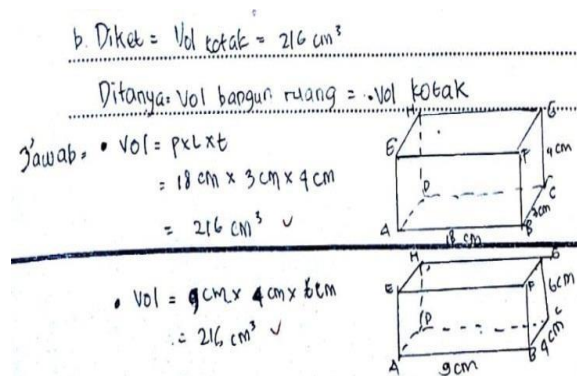 b. Diket = Vol kotak = 216 cm³
Ditanya = Vol bangun ruang = Vol kotak
Jawab = • Vol = p x L x t
= 18 cm x 3 cm x 4 cm
= 216 cm³ ✓
H G
E F
4 cm
D C
3 cm
A B
18 cm
• Vol = 9 cm x 4 cm x 6 cm
= 216 cm³ ✓
H G
E F
6 cm
D C
4 cm
A B
9 cm